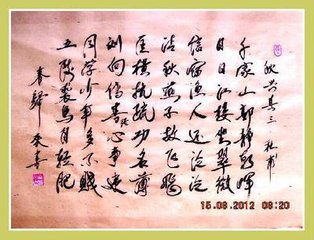 秋興其三 杜甫
千家山郭靜朝暉
日日江樓坐翠微
信宿漁人還泛泛
清秋燕子故飛飛
匡衡抗疏功名薄
劉向傳經心事違
同學少年多不賤
五陵裘馬自輕肥
15.08.2012 08:20